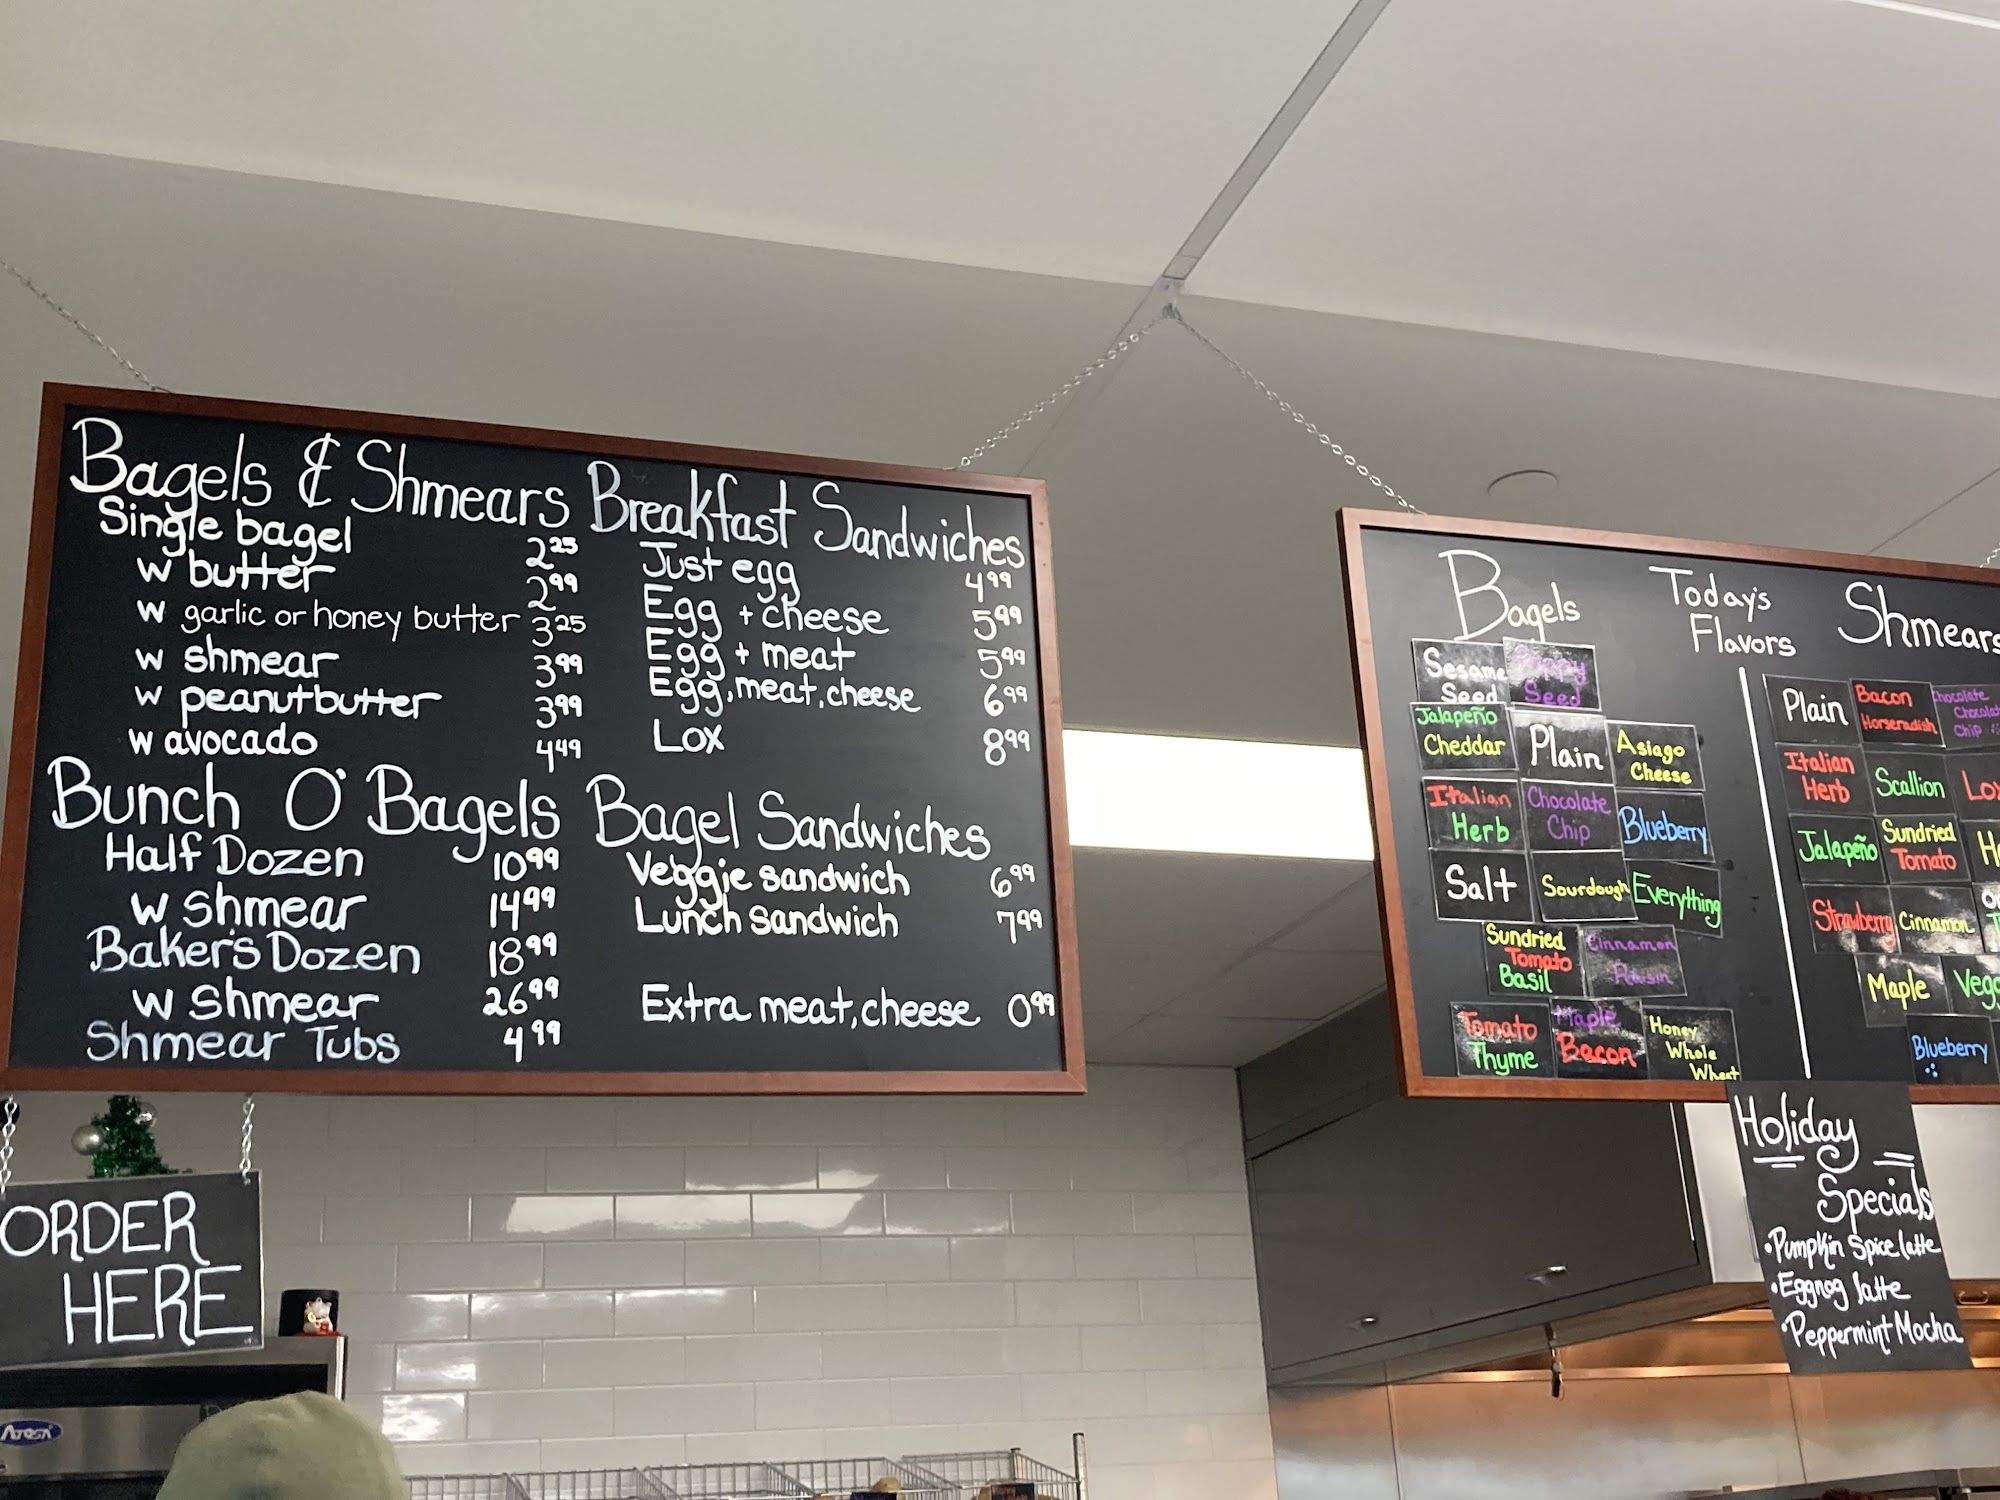 Bagels & Shmears
Single bagel 2.25
w butter 2.99
w garlic or honey butter 3.25
w shmear 3.99
w peanutbutter 3.99
w avocado 4.49
Bunch O' Bagels
Half Dozen 10.99
w shmear 14.99
Baker's Dozen 18.99
w shmear 26.99
Shmear Tubs 4.99
Breakfast Sandwiches
Just egg 4.99
Egg + cheese 5.99
Egg + meat 5.99
Egg, meat, cheese 6.99
Lox 8.99
Bagel Sandwiches
Veggie sandwich 6.99
Lunch sandwich 7.99
Extra meat, cheese 0.99
ORDER
HERE
Atosa
Today's
Flavors
Bagels
Sesame
Seed
Poppy
Seed
Jalapeño
Cheddar
Plain
Asiago
Cheese
Italian
Herb
Chocolate
Chip
Blueberry
Salt
Sourdough
Everything
Sundried
Tomato
Basil
Cinnamon
Raisin
Tomato
Thyme
Maple
Bacon
Honey
Whole
Wheat
Shmears
Plain
Bacon
Horseradish
Chocolate
Chocolate
Chip
Italian
Herb
Scallion
Lox
Jalapeño
Sundried
Tomato
Strawberry
Cinnamon
Maple
Blueberry
Holiday
Specials
• Pumpkin Spice latte
• Eggnog latte
• Peppermint Mocha